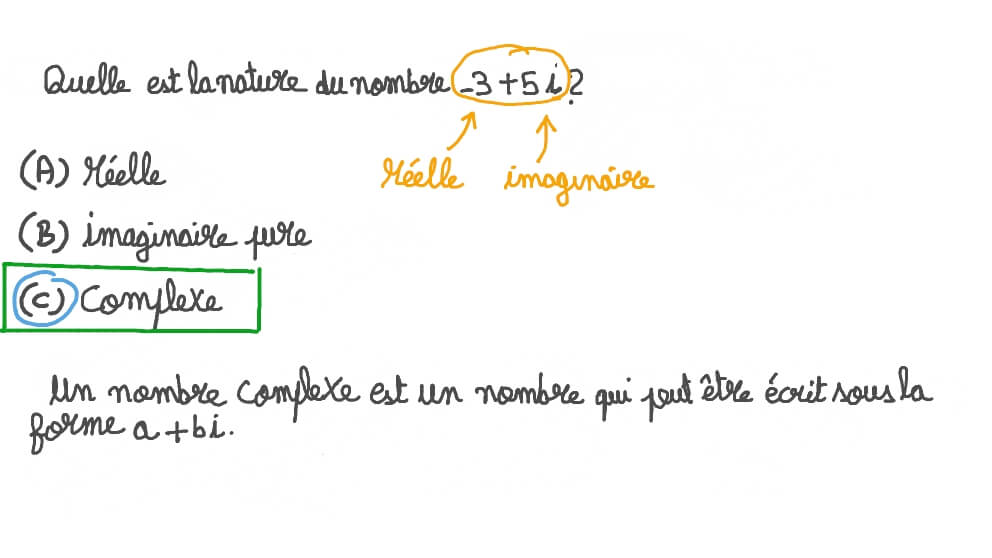 Quelle est la nature du nombre -3+5i?
réelle imaginaire
(A) réelle
(B) imaginaire pure
(C) Complexe
Un nombre complexe est un nombre qui peut être écrit sous la
forme a+bi.